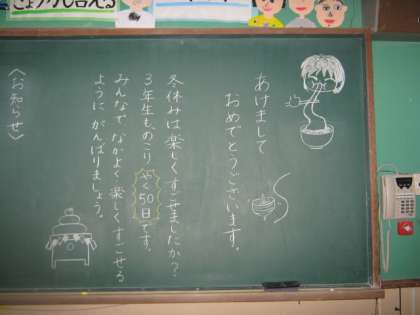 あけまして
おめでとうございます。
冬休みは楽しくすごせましたか?
3年生ものこり約50日です。
みんなでなかよく楽しくすごせる
ようにがんばりましょう。
〈お知らせ〉